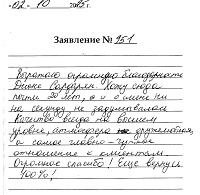 02 - 10 2015 г.
Заявление № 951
Выражаю огромную благодарность
Хожу сюда
почти 20 лет, а и о мне ни
на секунду не задумывалась
Качество всегда на высшем
уровне, атмосфера дружелюбная,
а самое главно - чуткое
отношение к клиентам.
Огромное спасибо! Еще вернусь
100%!